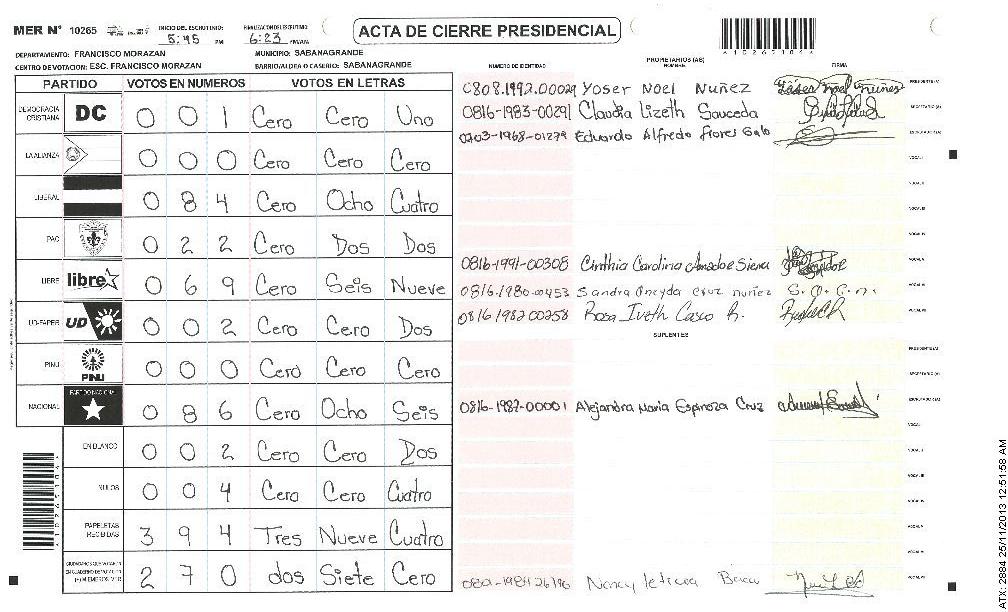 MER N° 10265 INICIO DEL ESCRUTINIO: 5:45 PM FINALIZACION DEL ESCRUTINIO: 6:23 PM/AM ACTA DE CIERRE PRESIDENCIAL
DEPARTAMENTO: FRANCISCO MORAZAN MUNICIPIO: SABANAGRANDE
CENTRO DE VOTACION: ESC. FRANCISCO MORAZAN BARRIO/ALDEA O CASERIO: SABANAGRANDE
NUMERO DE IDENTIDAD PROPIETARIOS (AS) NOMBRE FIRMA
PARTIDO VOTOS EN NUMEROS VOTOS EN LETRAS
DEMOCRACIA CRISTIANA DC 0 0 1 Cero Cero Uno
LA ALIANZA 0 0 0 Cero Cero Cero
LIBERAL 0 8 4 Cero Ocho Cuatro
PAC 0 2 2 Cero Dos Dos
LIBRE libre 0 6 9 Cero Seis Nueve
UD-FAPER UD 0 0 2 Cero Cero Dos
PINU PINU 0 0 0 Cero Cero Cero
NACIONAL PARTIDO NACIONAL 0 8 6 Cero Ocho Seis
EN BLANCO 0 0 2 Cero Cero Dos
NULOS 0 0 4 Cero Cero Cuatro
PAPELETAS RECIBIDAS 3 9 4 Tres Nueve Cuatro
2 7 0 dos Siete Cero
0808.1992.00029 Yoser Noel Nuñez PRESIDENTE(A)
0816-1983-00291 Claudia Lizeth Sauceda SECRETARIO (A)
0703-1968-01279 Eduardo Alfredo flores Galo ESCRUTADOR (A)
VOCAL I
VOCAL II
VOCAL III
VOCAL IV
0816-1991-00308 Cinthia Carolina Amador Sierra VOCAL V
0816-1980-00453 Sandra Oneyda cruz nuñez S.O.C.n. VOCAL VI
0816 1982 00258 Rosa Iveth Casco R. VOCAL VII
SUPLENTES
PRESIDENTE(A)
SECRETARIO (A)
0816-1987-00001 Alejandra Maria Espinoza Cruz ESCRUTADOR (A)
VOCAL I
VOCAL II
VOCAL III
VOCAL IV
VOCAL V
VOCAL VI
Nancy VOCAL VII
ATX: 2884 25/11/2013 12:51:58 AM